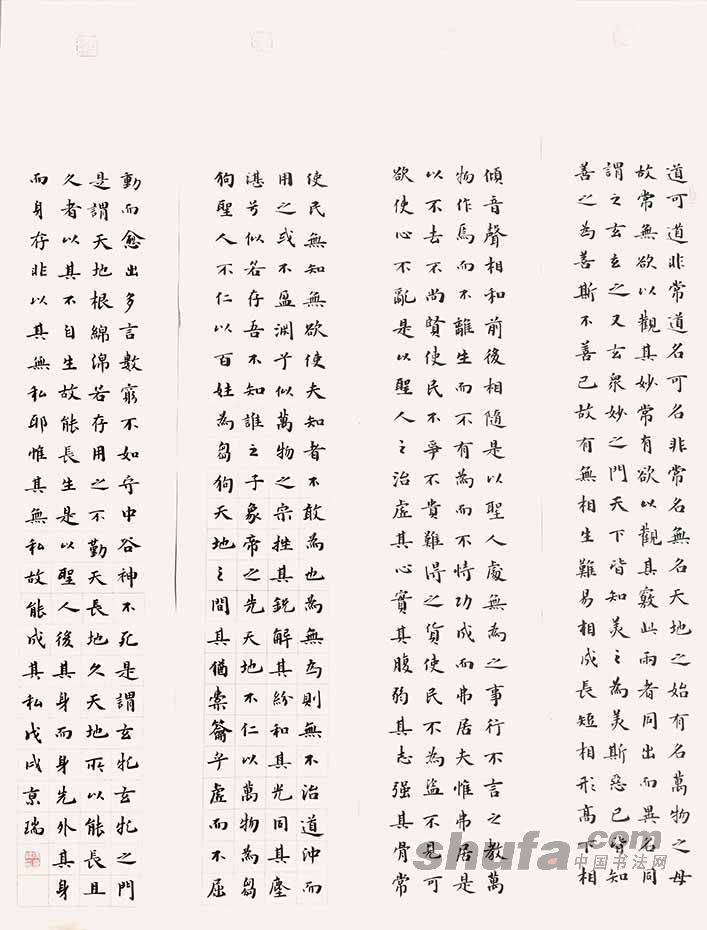 道可道非常道名可名非常名無名天地之始有名萬物之母
故常無欲以觀其妙常有欲以觀其竅此兩者同出而異名同
謂之玄玄之又玄衆妙之門天下皆知美之為美斯惡已皆知
善之為善斯不善已故有無相生難易相成長短相形高下相
傾音聲相和前後相隨是以聖人處無為之事行不言之教萬
物作焉而不離生而不有為而不恃功成而弗居夫惟弗居是
以不去不尚賢使民不爭不貴難得之貨使民不為盜不見可
欲使心不亂是以聖人之治虛其心實其腹弱其志强其骨常
使民無知無欲使夫知者不敢為也為無為則無不治道沖而
用之或不盈淵乎似萬物之宗挫其銳解其紛和其光同其塵
湛兮似若存吾不知誰之子象帝之先天地不仁以萬物為芻
狗聖人不仁以百姓為芻狗天地之間其猶橐籥乎虛而不屈
動而愈出多言數窮不如守中谷神不死是謂玄牝玄牝之門
是謂天地根綿綿若存用之不勤天長地久天地所以能長且
久者以其不自生故能長生是以聖人後其身而身先外其身
而身存非以其無私耶惟其無私故能成其私戊戌京瑞
shufa.com
中国书法网